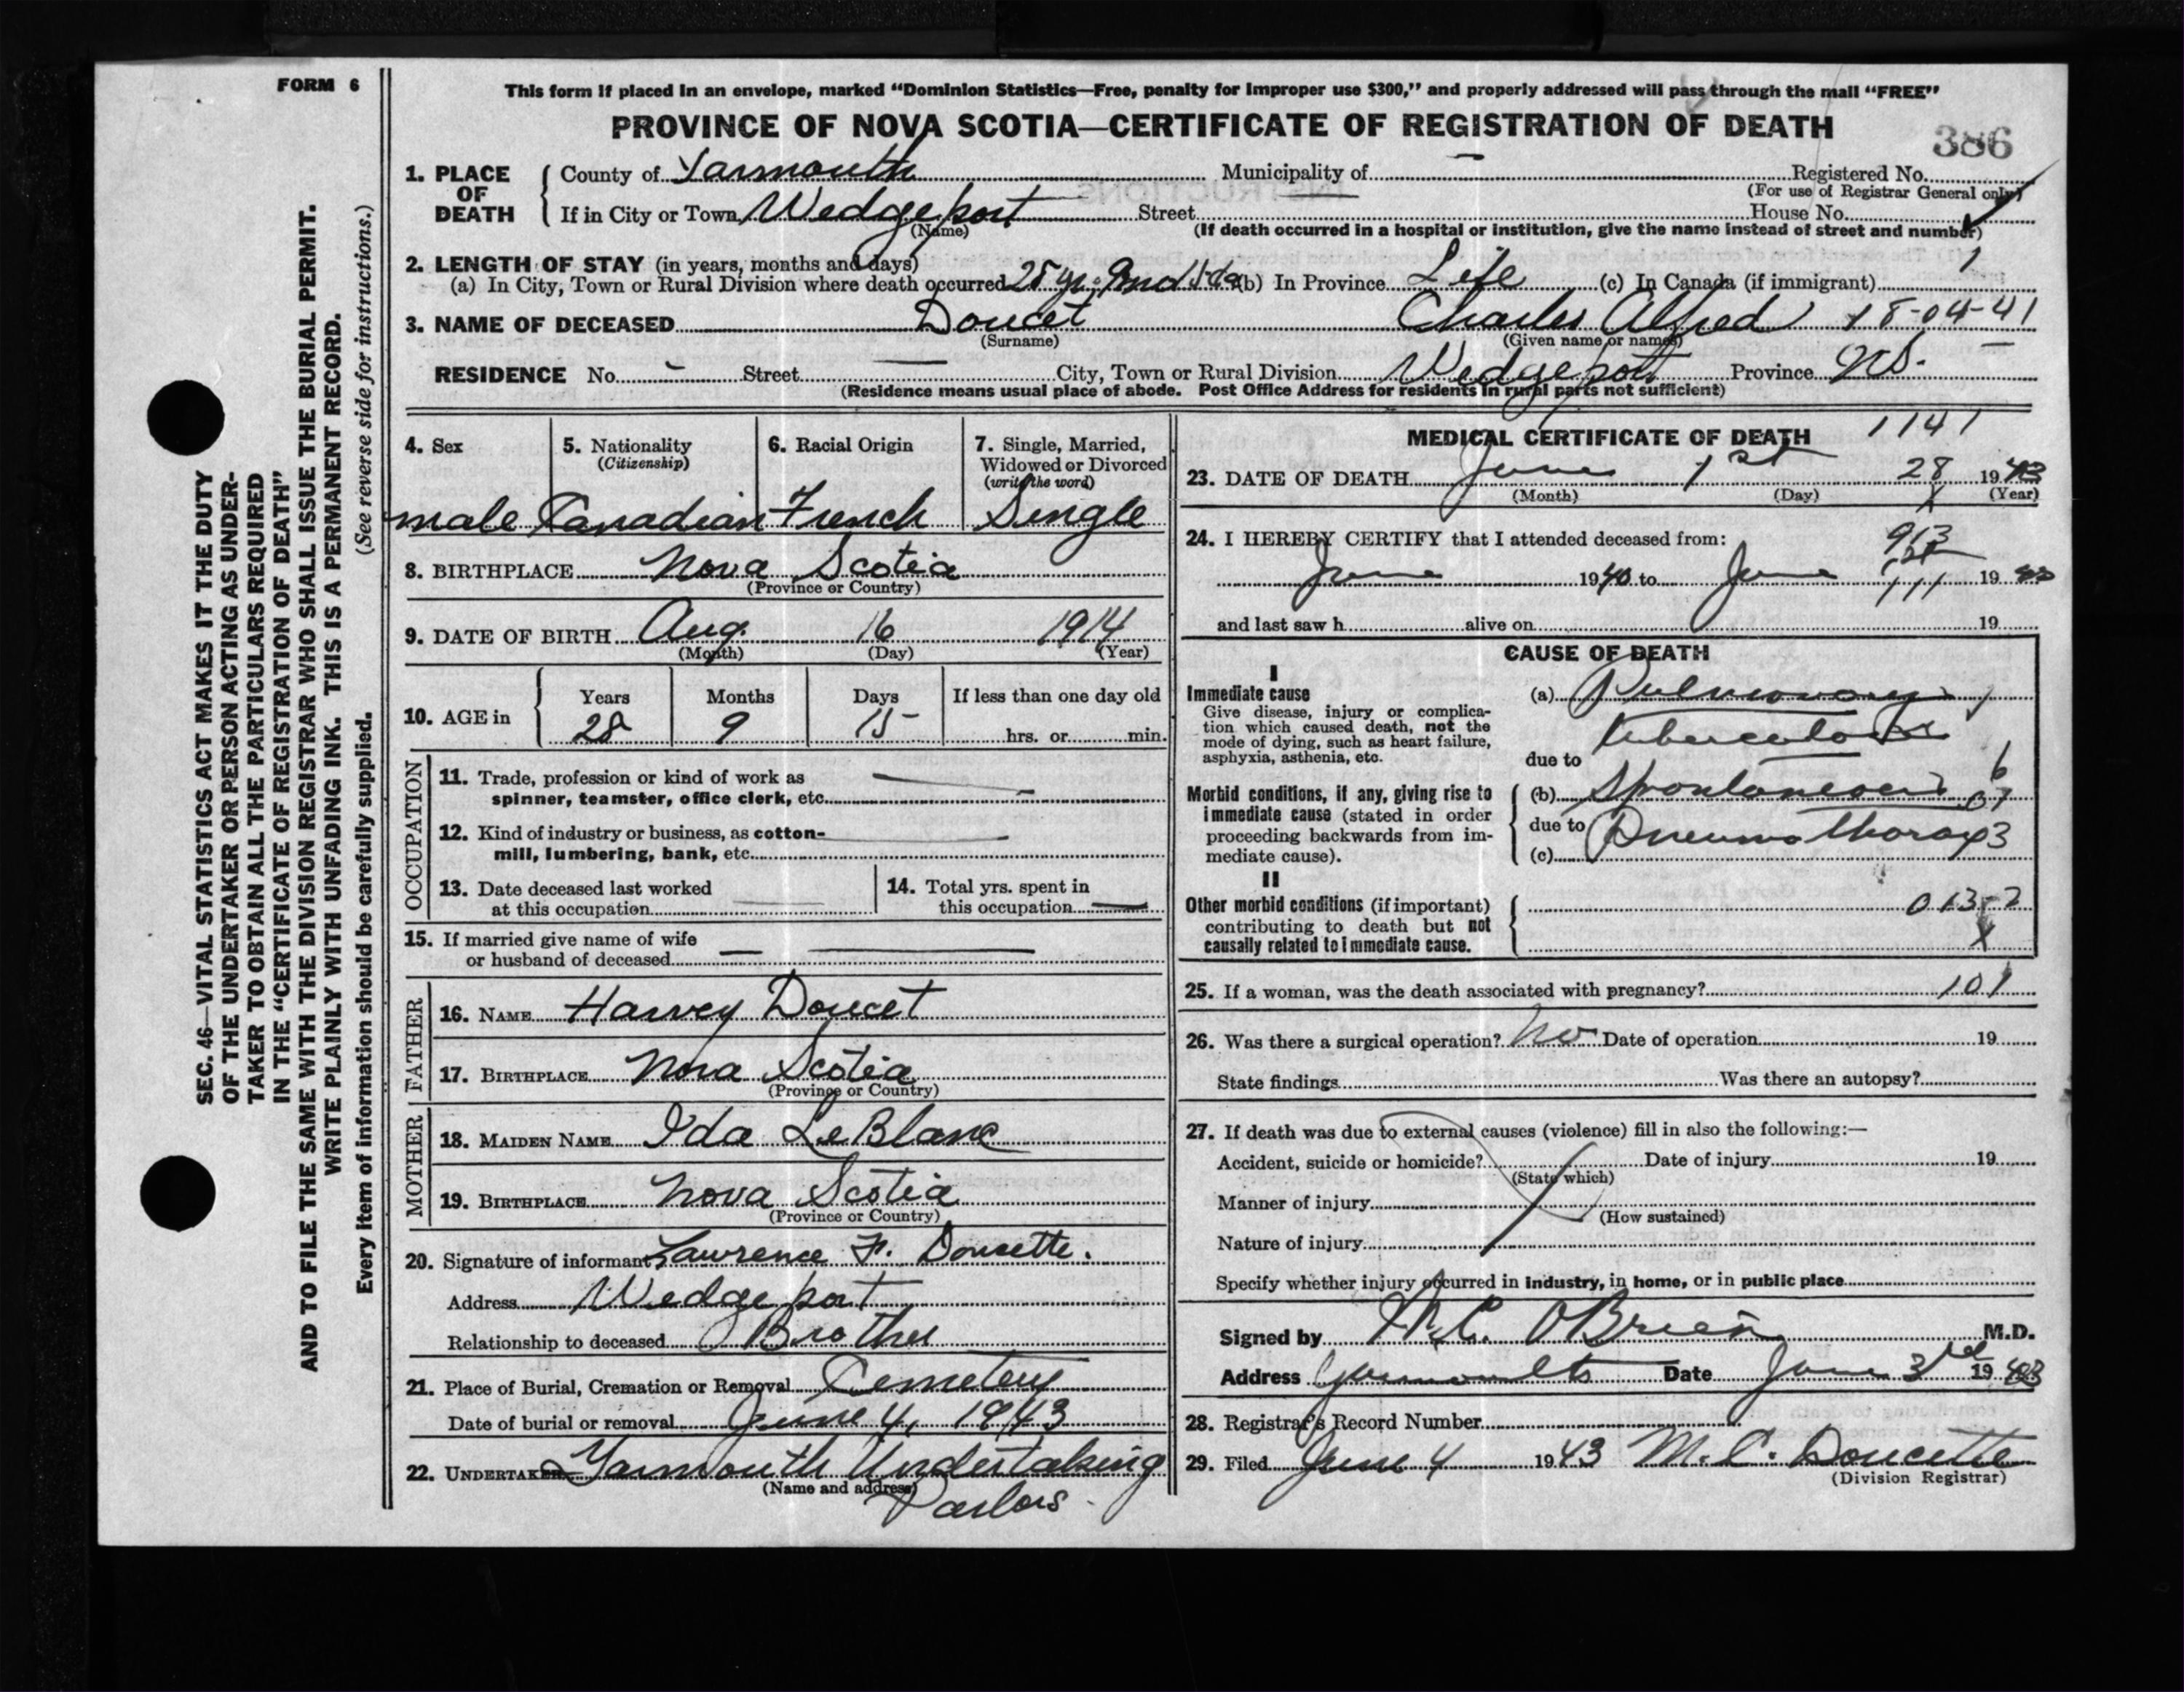 FORM 6
SEC. 46—VITAL STATISTICS ACT MAKES IT THE DUTY
OF THE UNDERTAKER OR PERSON ACTING AS UNDER-
TAKER TO OBTAIN ALL THE PARTICULARS REQUIRED
IN THE "CERTIFICATE OF REGISTRATION OF DEATH"
AND TO FILE THE SAME WITH THE DIVISION REGISTRAR WHO SHALL ISSUE THE BURIAL PERMIT.
WRITE PLAINLY WITH UNFADING INK. THIS IS A PERMANENT RECORD.
Every item of information should be carefully supplied. (See reverse side for instructions.)
This form if placed in an envelope, marked "Dominion Statistics—Free, penalty for improper use $300," and properly addressed will pass through the mail "FREE"
PROVINCE OF NOVA SCOTIA—CERTIFICATE OF REGISTRATION OF DEATH
386
1. PLACE OF DEATH County of Yarmouth Municipality of — Registered No.
(For use of Registrar General only)
If in City or Town Wedgeport Street House No.
(Name) (If death occurred in a hospital or institution, give the name instead of street and number)
2. LENGTH OF STAY (in years, months and days) 1
(a) In City, Town or Rural Division where death occurred 28 yr. 9 mo 15 da (b) In Province Life (c) In Canada (if immigrant)
3. NAME OF DECEASED Doucet Charles Alfred 18-04-41
(Surname) (Given name or names)
RESIDENCE No. — Street — City, Town or Rural Division Wedgeport Province N.S.
(Residence means usual place of abode. Post Office Address for residents in rural parts not sufficient)
4. Sex 5. Nationality (Citizenship) 6. Racial Origin 7. Single, Married, Widowed or Divorced (write the word)
male Canadian French Single
8. BIRTHPLACE Nova Scotia
(Province or Country)
9. DATE OF BIRTH Aug. 16 1914
(Month) (Day) (Year)
10. AGE in Years Months Days If less than one day old
28 9 15 hrs. or min.
OCCUPATION
11. Trade, profession or kind of work as
spinner, teamster, office clerk, etc. —
12. Kind of industry or business, as cotton-
mill, lumbering, bank, etc. —
13. Date deceased last worked
at this occupation —
14. Total yrs. spent in
this occupation —
15. If married give name of wife
or husband of deceased — —
FATHER
16. NAME Harvey Doucet
17. BIRTHPLACE Nova Scotia
(Province or Country)
MOTHER
18. MAIDEN NAME Ida LeBlanc
19. BIRTHPLACE Nova Scotia
(Province or Country)
20. Signature of informant Lawrence F. Doucette.
Address Wedgeport
Relationship to deceased Brother
21. Place of Burial, Cremation or Removal Cemetery
Date of burial or removal June 4, 1943
22. UNDERTAKER Yarmouth Undertaking
(Name and address) Parlors
MEDICAL CERTIFICATE OF DEATH 1141
23. DATE OF DEATH June 1st 28 1943
(Month) (Day) (Year)
24. I HEREBY CERTIFY that I attended deceased from: 913
June 1940 to June 1st 1943
111
and last saw h alive on 19
CAUSE OF DEATH
I
Immediate cause
Give disease, injury or complica-
tion which caused death, not the
mode of dying, such as heart failure,
asphyxia, asthenia, etc.
(a) Pulmonary
Tuberculosis
due to
Morbid conditions, if any, giving rise to
immediate cause (stated in order
proceeding backwards from im-
mediate cause).
(b) Spontaneous
due to Pneumothorax
(c)
II
Other morbid conditions (if important)
contributing to death but not
causally related to immediate cause.
013-2
25. If a woman, was the death associated with pregnancy? 101
26. Was there a surgical operation? No Date of operation 19
State findings Was there an autopsy?
27. If death was due to external causes (violence) fill in also the following:—
Accident, suicide or homicide? Date of injury 19
(State which)
Manner of injury
(How sustained)
Nature of injury
Specify whether injury occurred in industry, in home, or in public place
Signed by O'Brien M.D.
Address Yarmouth Date June 3rd 1943
28. Registrar's Record Number
29. Filed June 4 1943 M. C. Doucette
(Division Registrar)